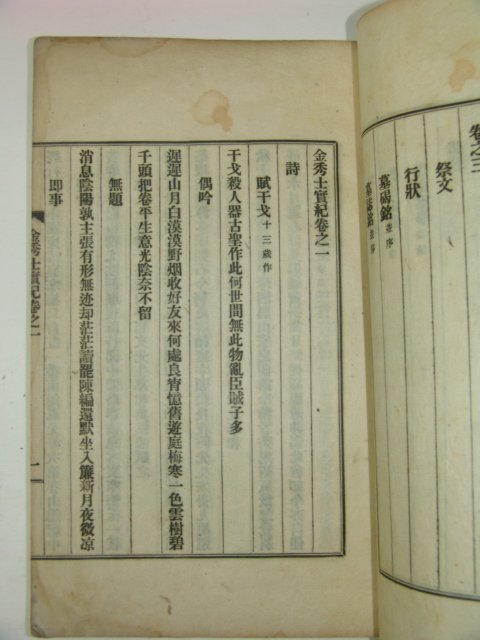 卷之三
祭文
行狀
墓碣銘 並序
墓誌銘 並序
金秀士實紀卷之一
詩
賦干戈 十三歲作
干戈殺人器古聖作此何世間無此物亂臣賊子多
偶吟
遲遲山月白漠漠野烟收好友來何處良宵憶舊遊庭梅寒一色雲樹碧
千頭把卷平生意光陰奈不留
無題
消息陰陽孰主張有形無迹却茫茫讀罷陳編還默坐入簾新月夜微凉
即事
金秀士實紀卷之一
一